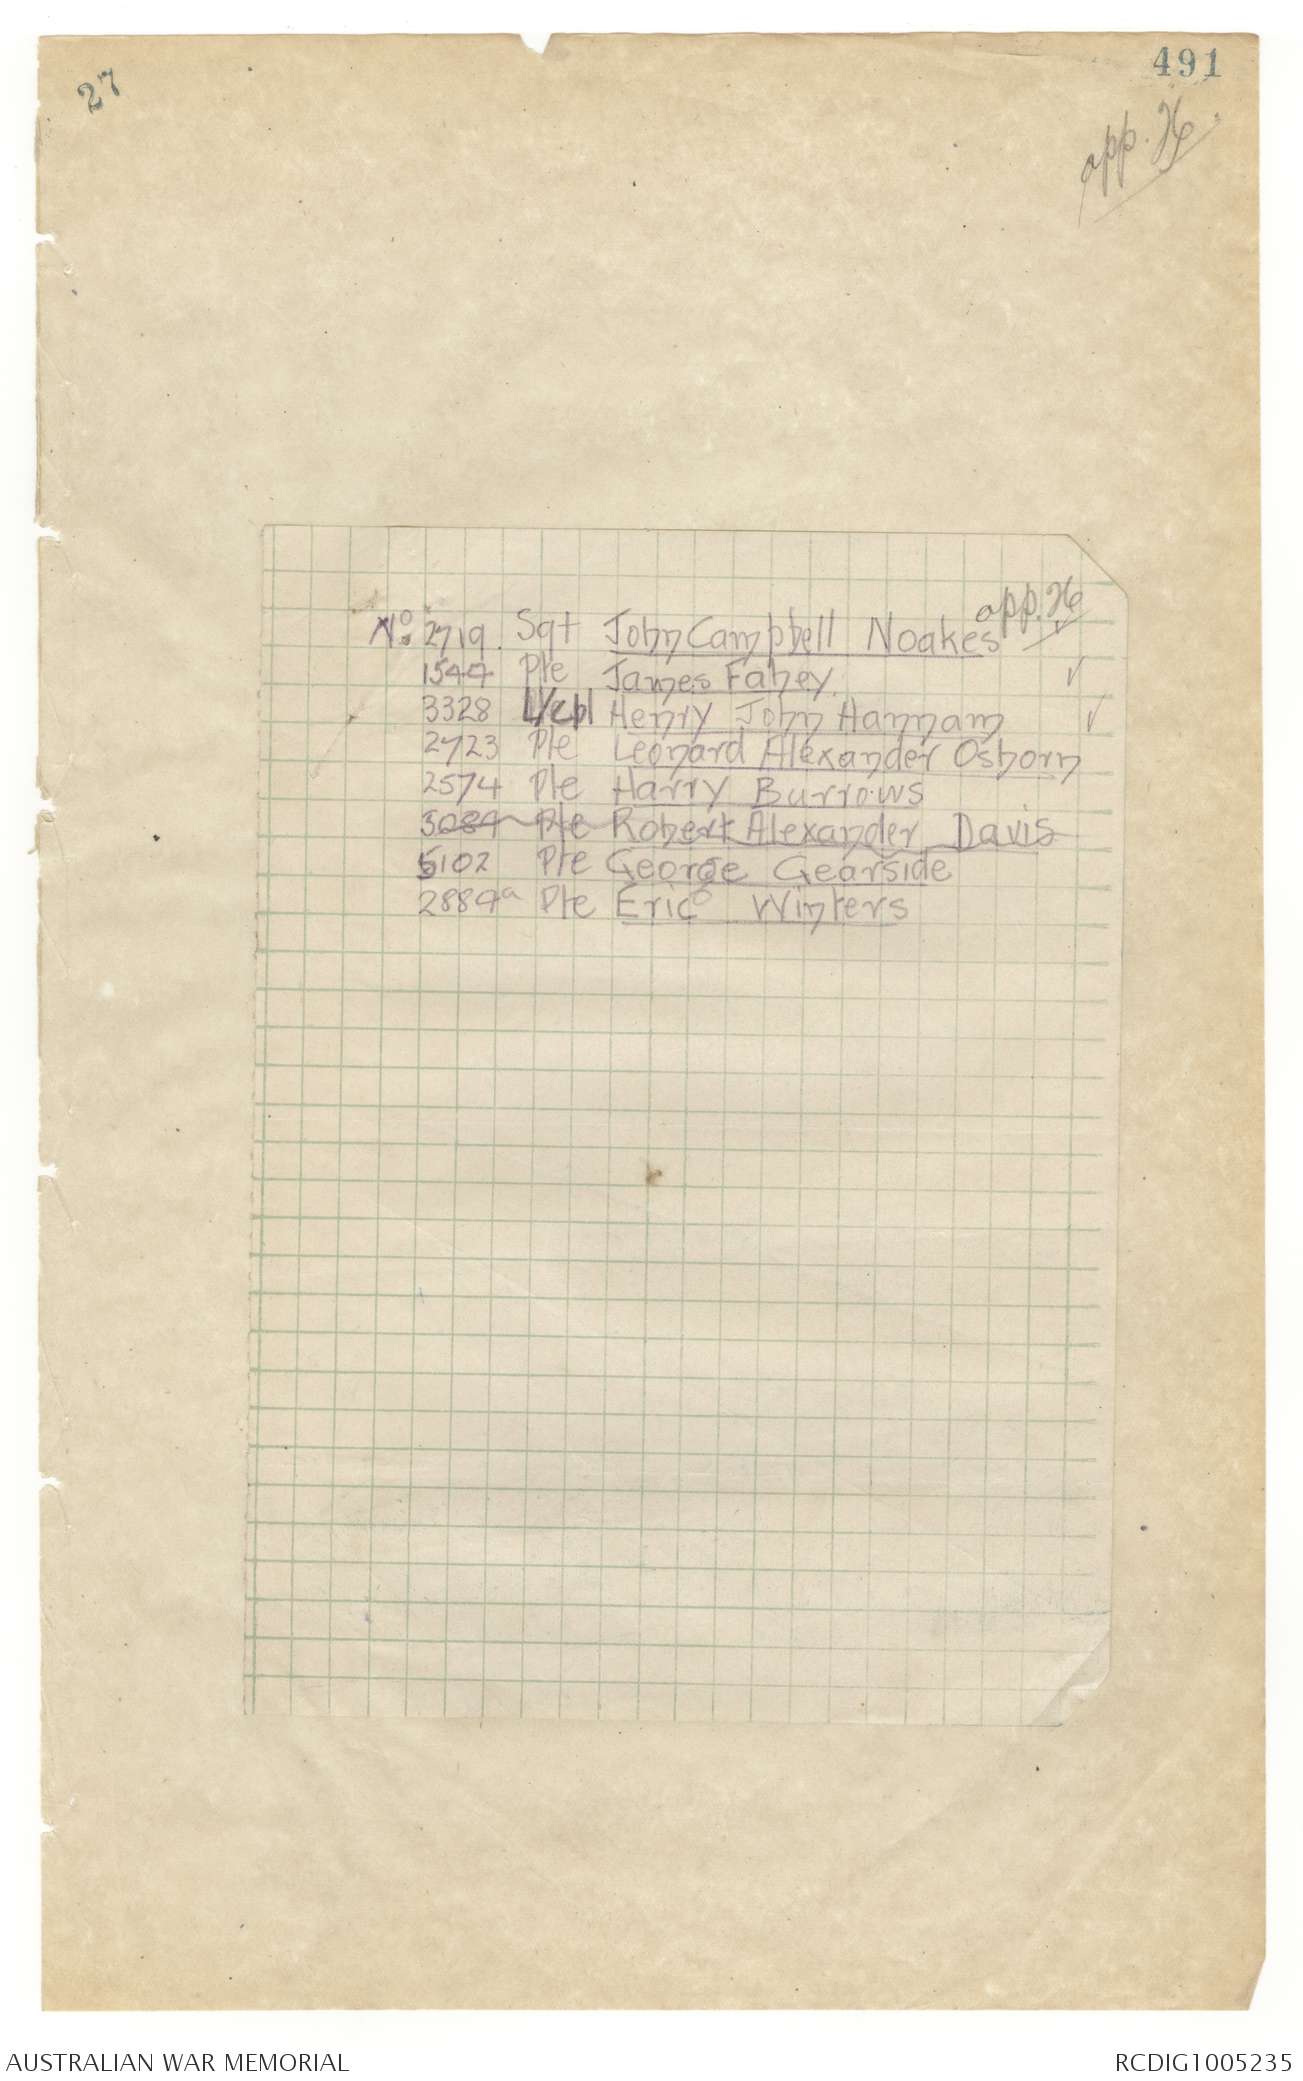 27
491
app. 26
app. 26
No 2719. Sgt John Campbell Noakes
1544 Pte James Fahey.
3328 L/cpl Henry John Hannam
2723 Pte Leonard Alexander Osborn
2574 Pte Harry Burrows
3089 Pte Robert Alexander Davis
5102 Pte George Gearside
2884a Pte Eric Winters
AUSTRALIAN WAR MEMORIAL
RCDIG1005235